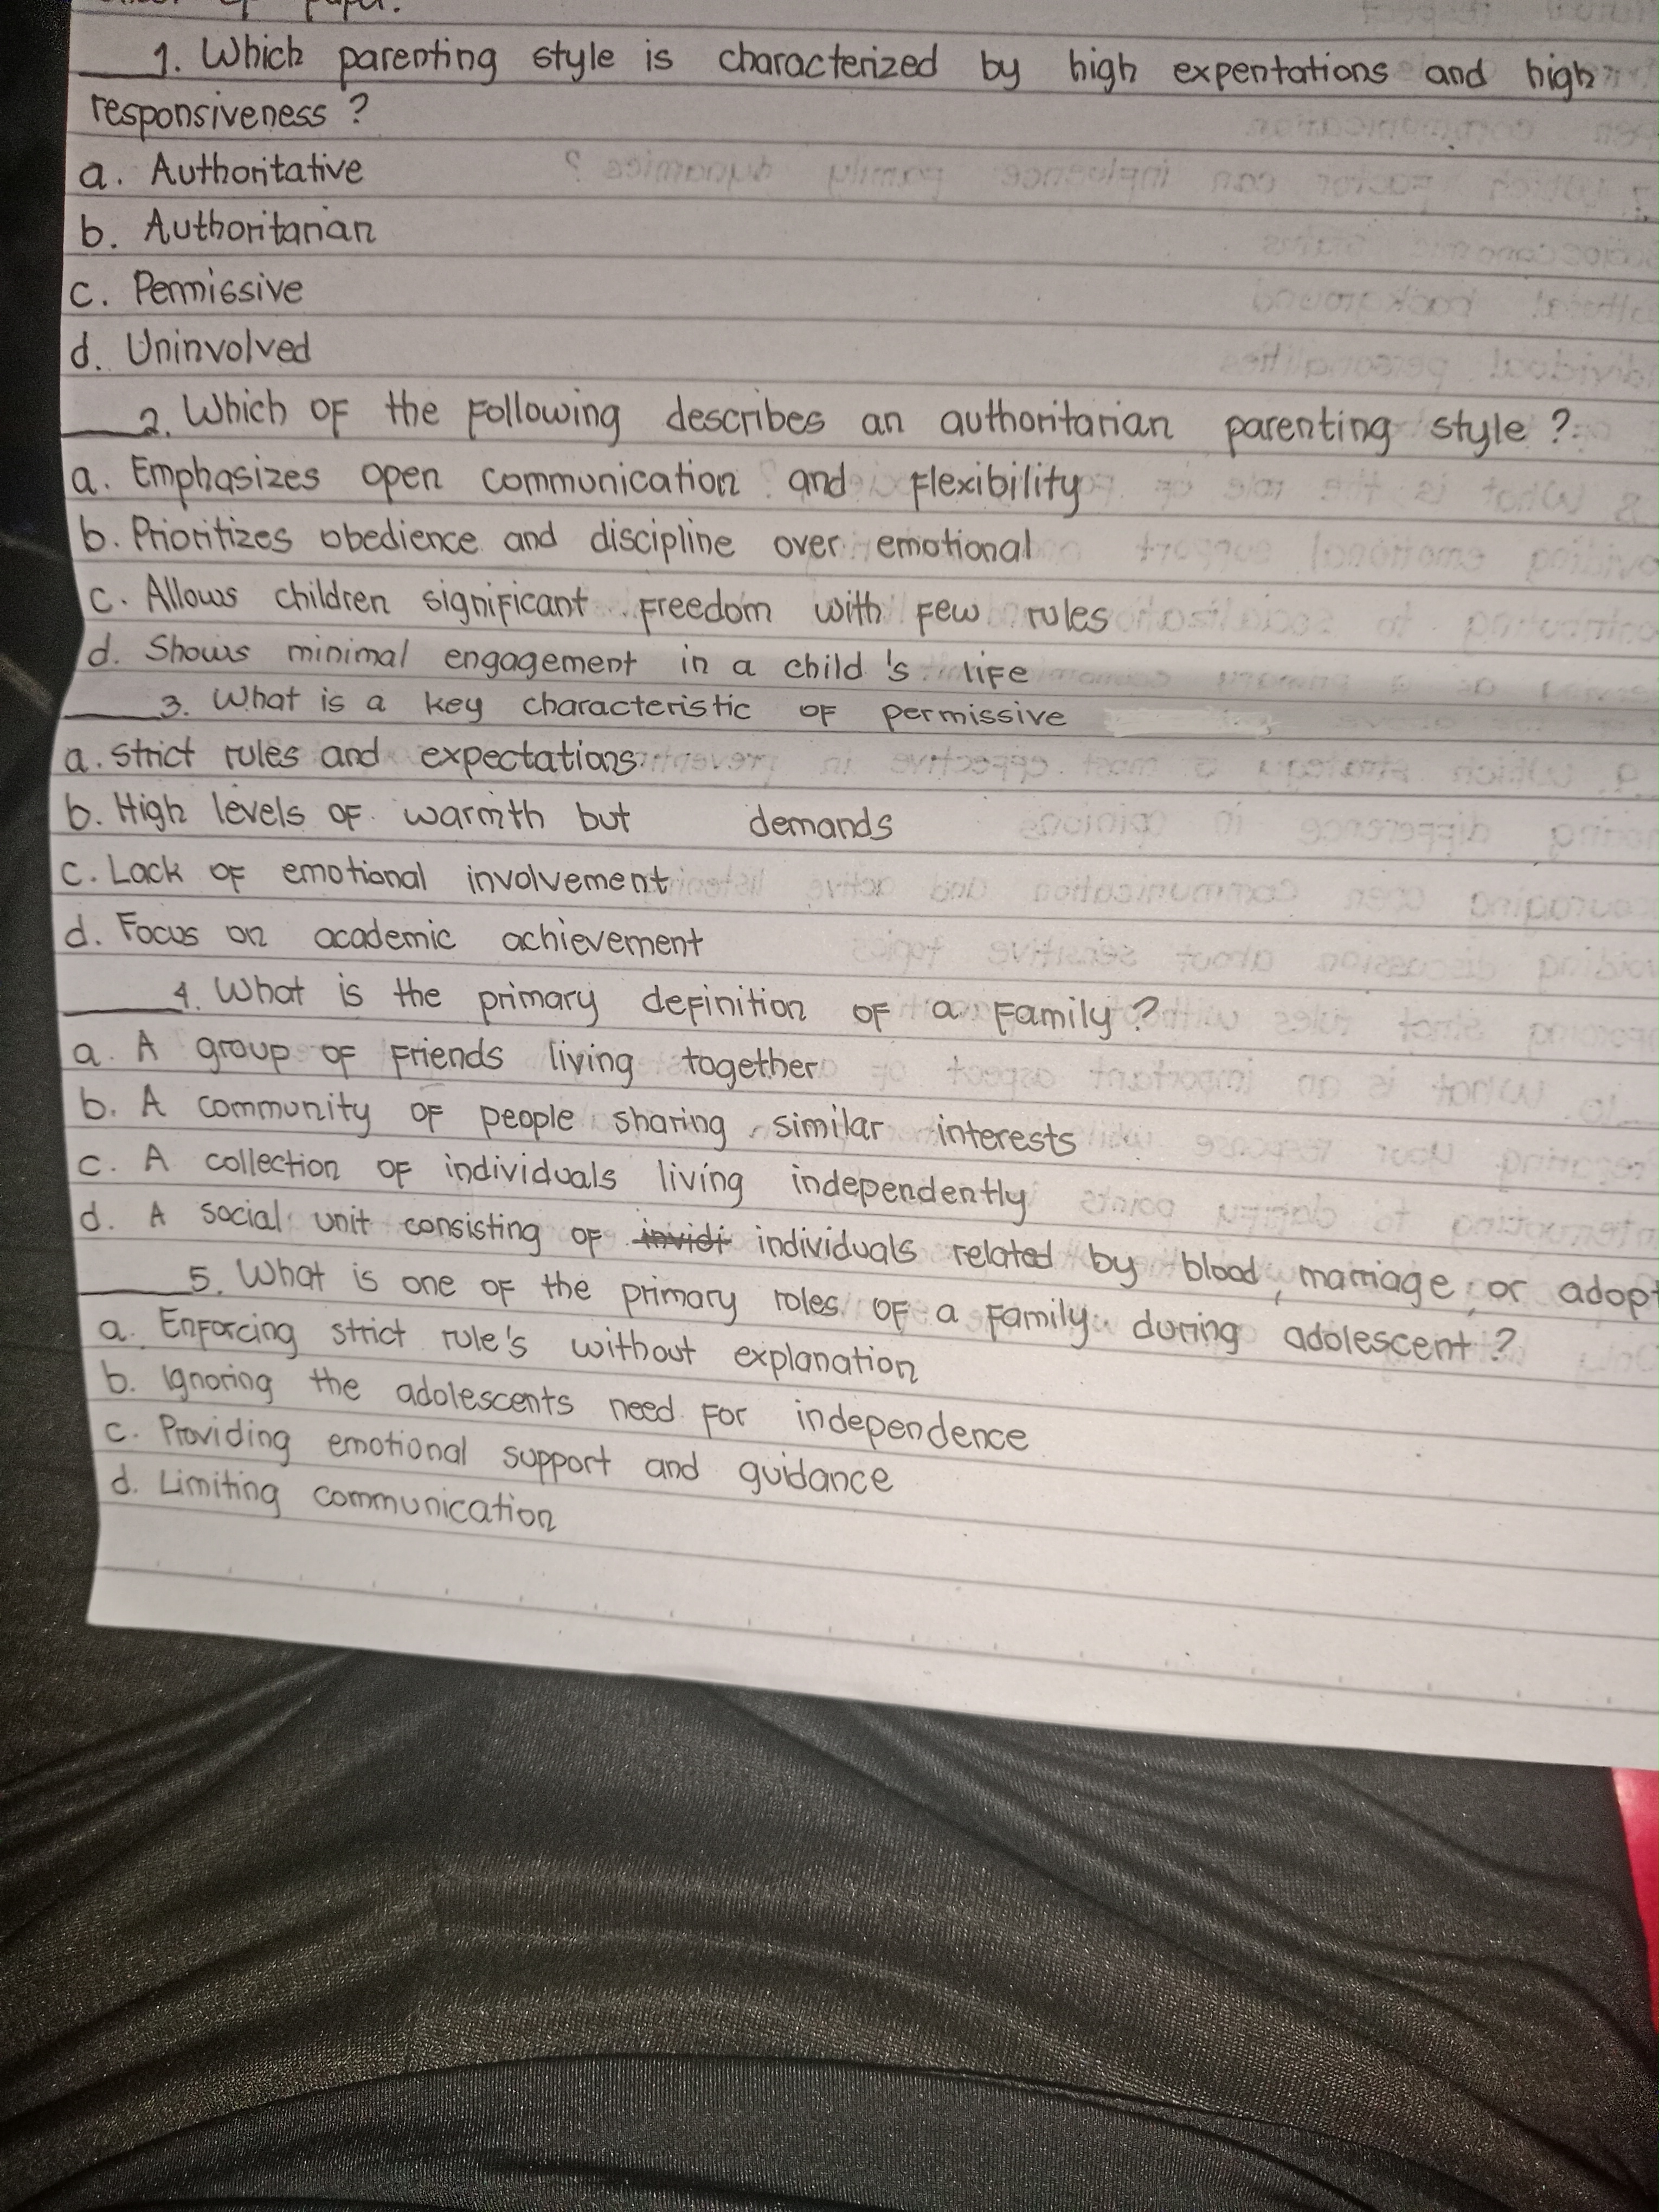 paper.
1. Which parenting style is characterized by high expentations and high
responsiveness ?
a. Authoritative
b. Authoritarian
c. Permissive
d. Uninvolved
2. Which of the following describes an authoritarian parenting style ?
a. Emphasizes open communication and flexibility
b. Prioritizes obedience and discipline over emotional
c. Allows children significant freedom with few rules
d. Shows minimal engagement in a child 's life
3. What is a key characteristic of permissive
a. strict rules and expectations
b. High levels of warmth but demands
c. Lack of emotional involvement
d. Focus on academic achievement
4. What is the primary definition of a family ?
a. A group of friends living together
b. A community of people sharing similar interests
c. A collection of individuals living independently
d. A social unit consisting of invidi individuals related by blood, marriage, or adopt
5. What is one of the primary roles of a family during adolescent ?
a. Enforcing strict rule's without explanation
b. Ignoring the adolescents need for independence
c. Providing emotional support and guidance
d. Limiting communication